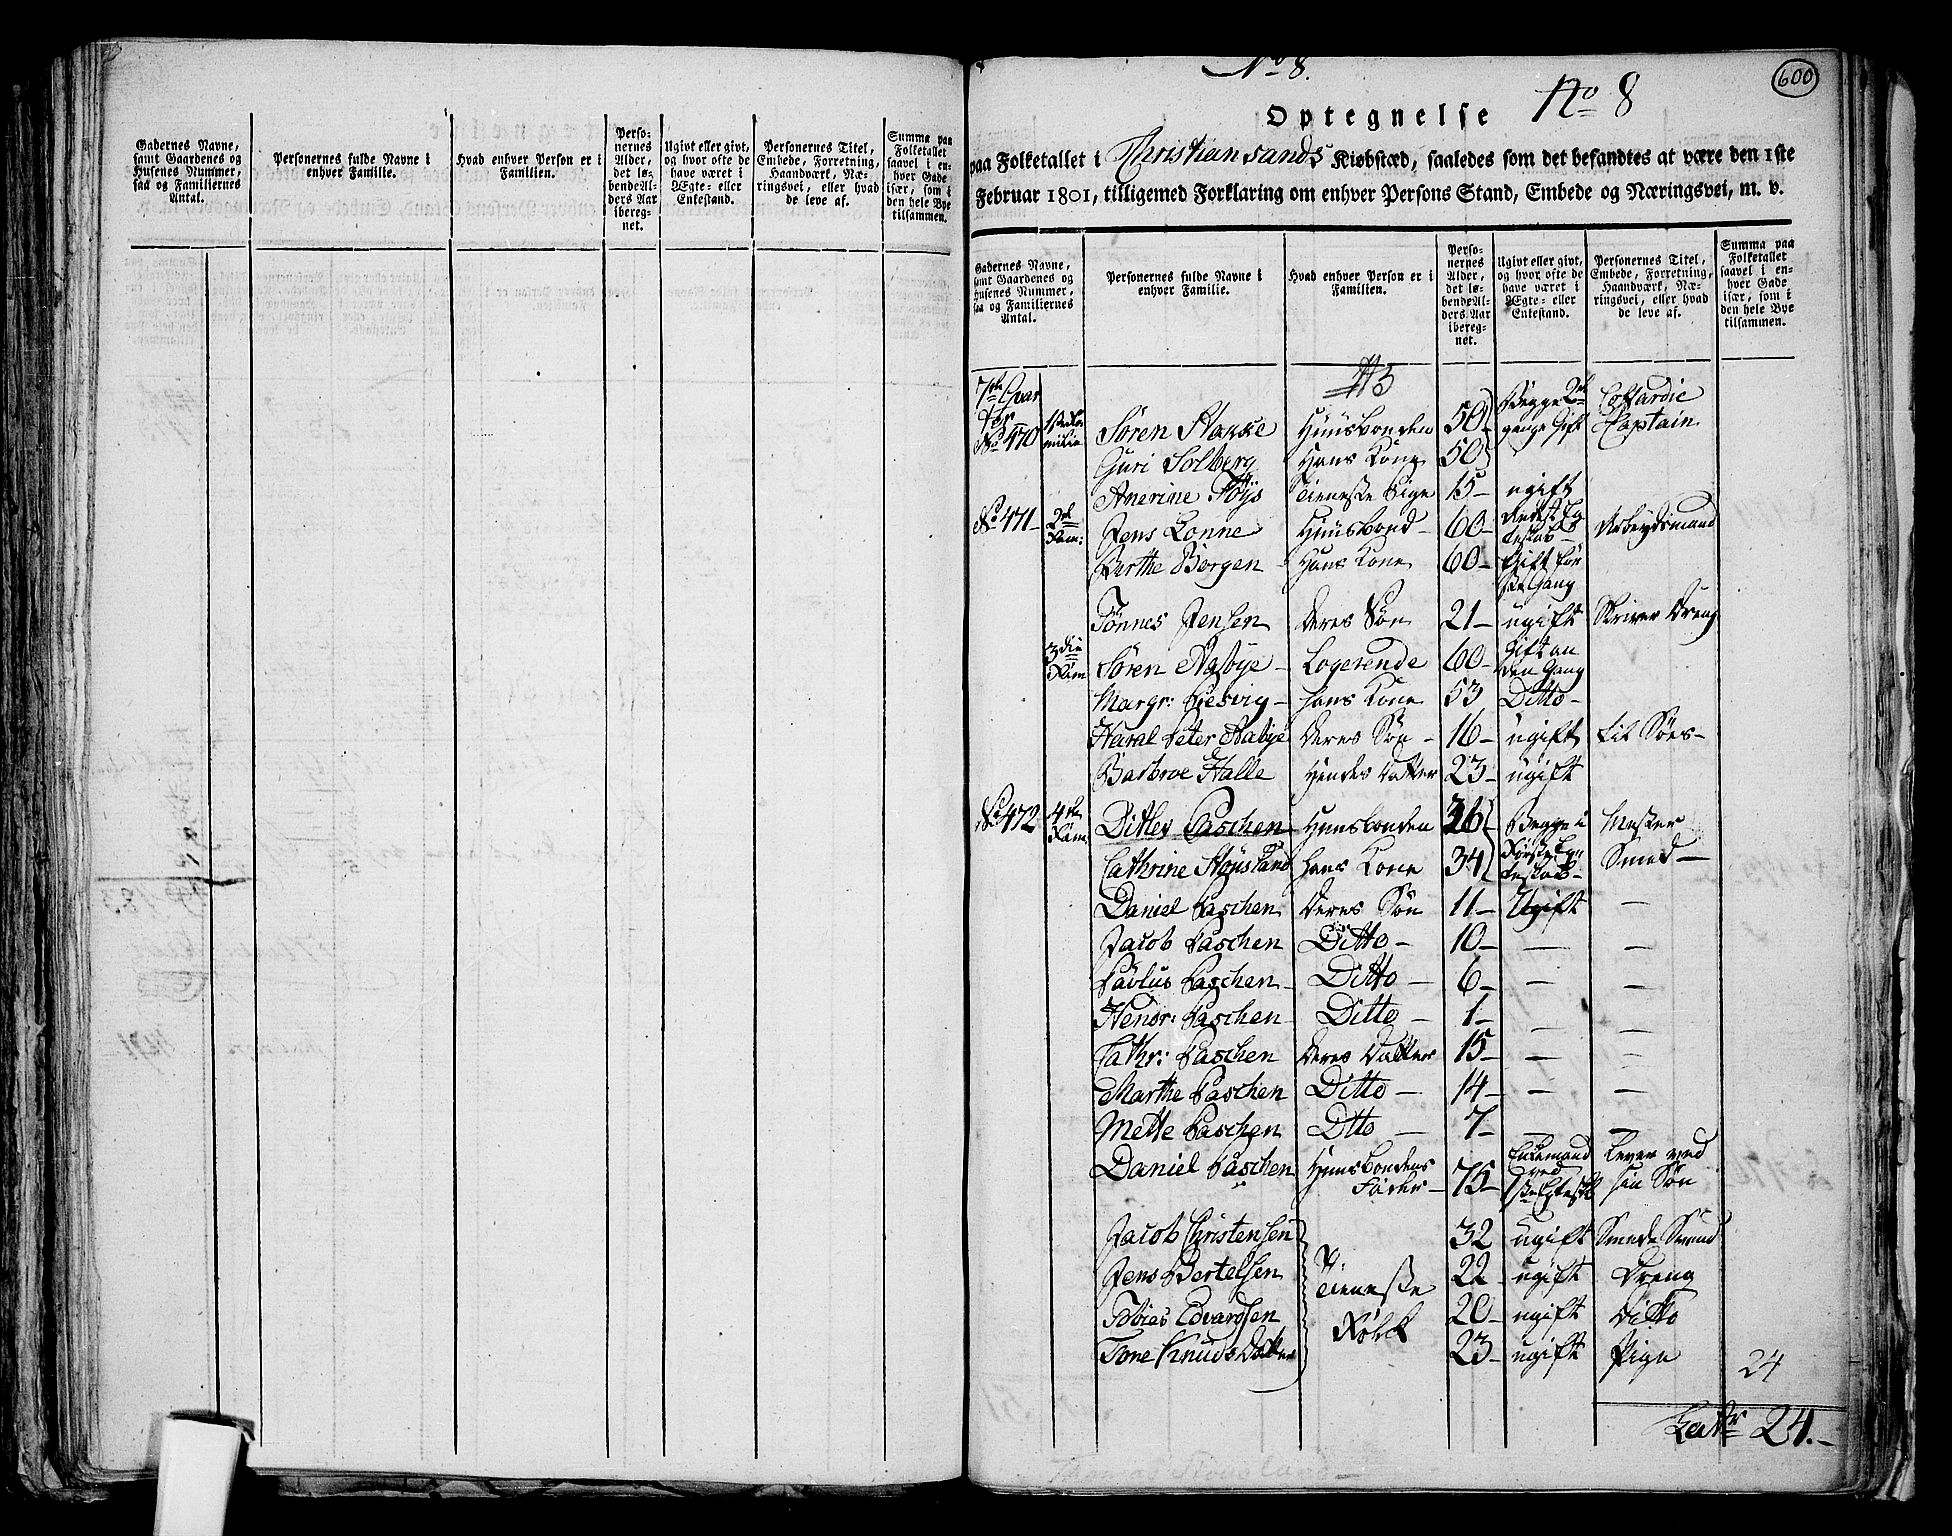 Gadernes Navne,
samt Gaardenes og
Husenes Nummer,
saa og Familiernes
Antal.
Personernes fulde Navne i
enhver Familie.
Hvad enhver Person er i
Familien.
Perso-
nernes
Alder,
det lø-
bende Al-
ders Aar
ibereg-
net.
Ugivt eller givt,
og hvor ofte de
have været i
Ægte- eller
Enkestand.
Personernes Titel,
Embede, Forretning,
Haandværk, Næ-
ringsvei, eller hvad
de leve af.
Summa paa
Folketallet
saavel i en-
hver Gade
især, som i
den hele Bye
tilsammen.
No 8.
No 8
600
Optegnelse
paa Folketallet i Christiansands Kiøbstæd, saaledes som det befandtes at være den 1ste
Februar 1801, tilligemed Forklaring om enhver Persons Stand, Embede og Næringsvei, m. v.
Gadernes Navne,
samt Gaardenes og
Husenes Nummer,
saa og Familiernes
Antal.
Personernes fulde Navne i
enhver Familie.
Hvad enhver Person er i
Familien.
Perso-
nernes
Alder,
det lø-
bende Al-
ders Aar
ibereg-
net.
Ugivt eller givt,
og hvor ofte de
have været i
Ægte- eller
Enkestand.
Personernes Titel,
Embede, Forretning,
Haandværk, Næ-
ringsvei, eller hvad
de leve af.
Summa paa
Folketallet
saavel i en-
hver Gade
især, som i
den hele Bye
tilsammen.
7de Qvar
ter Begge 2de Coffardie
No 470 1ste Fa milie Søren Huusbonden 50 gange Gift Captain
Guri Solberg Hans Kone 50
Anerine Tienneste Pige 15 - ugift
No 471 - 2de Fam: Jens Lonne Huusbond - 60 - Andet Eg teskab - Arbeydsmand
Berthe Borgen - Hans Kone 60 - Gift før ste Gang
Tønnes Jensen Deres Søn 21 - ugift Skriver Dreng
3die Fam Søren Aabye - Logerende 60 - Gift an den Gang
Margr: Hesvig - hans Kone 53 Ditto -
Haral Peter Aabye Deres Søn - 16 - ugift til Søes -
Barbroe Halle Hendes Datter 23 - ugift
No 472 4de Fam Ditlev Paschen Huusbonden 36 Begge i Mester
Cathrine hans Kone 34 Første Eg teskab - Smed -
Daniel Paschen Deres Søn 11 - Ugift -
Jacob Paschen Ditto - 10 - - -
Paulus Paschen - Ditto - 6 - - -
Hendr: Paschen Ditto - 1 - - -
Cathr: Paschen Deres Datter 15 - - -
Marthe Paschen Ditto - 14 - - -
Mette Paschen Dtto - 7 - - -
Daniel Paschen Huusbondens Fader - 75 - Enkemand ved 1ste Egtesk Lever ved sin Søn
Jacob Christensen 32 ugift Smede Svend
Jens Bertelsen Tieneste 22 - ugift Dreng
Tobies Edvardsen Folck 20 - ugift Ditto
Tone Knuds Datter 23 - ugift Pige 24
Latr 24. -